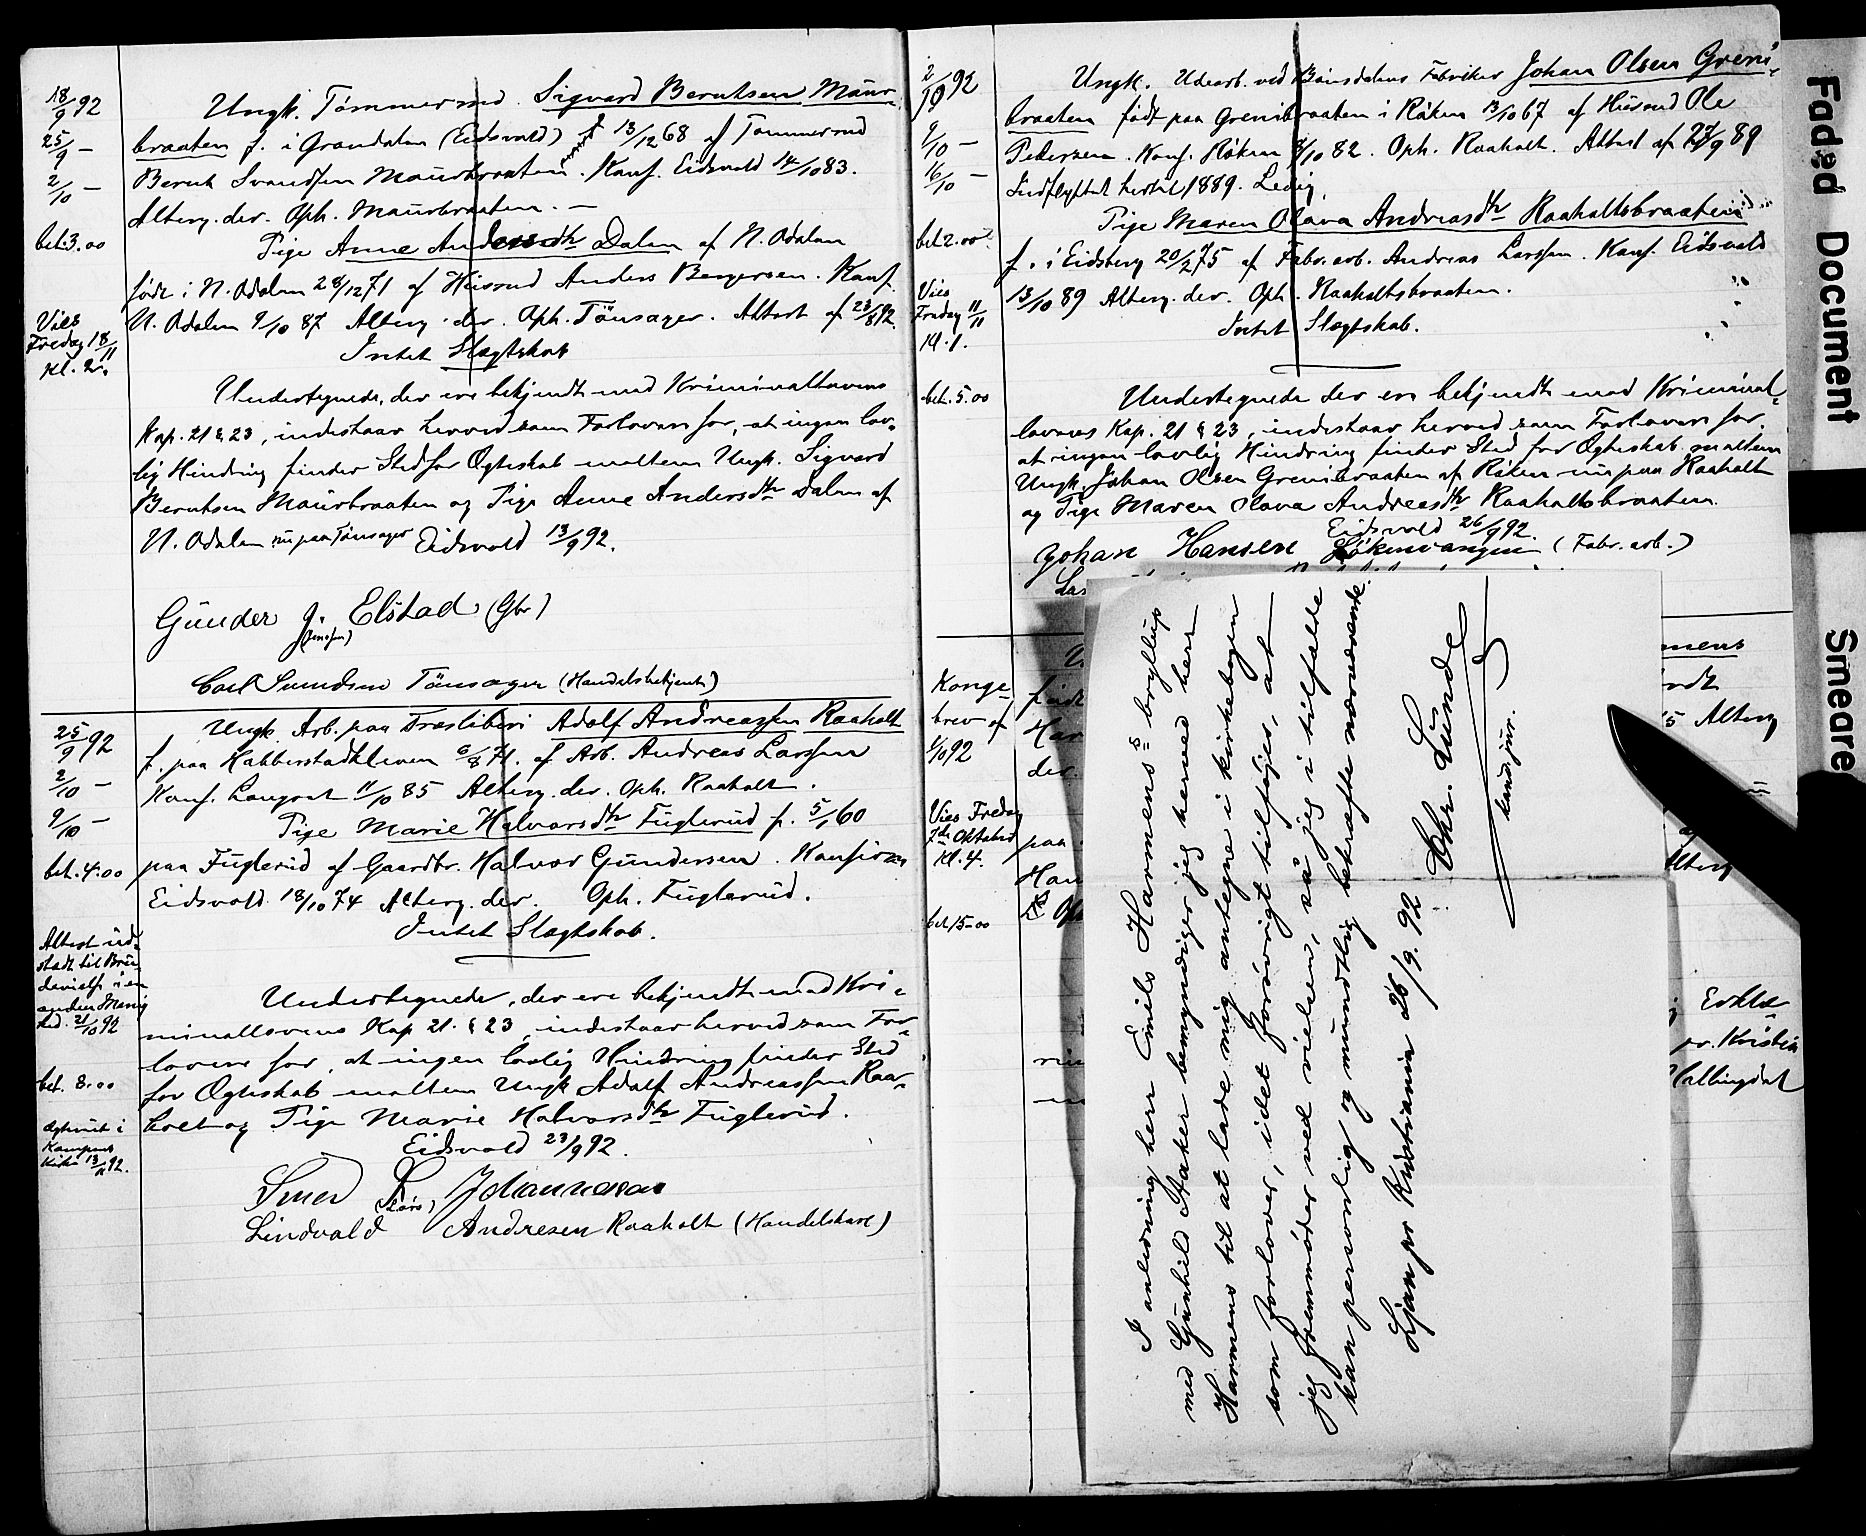 18/9 92
25/9 —
2/10 —
bet. 3.00
Vies
Fredag 18/11
Kl. 2.
Ungk. Tømmermd. Sigvard Berntsen Maur-
braaten f. i Grøndalen (Eidsvold) 13/12 68 af Tømmermd
Bernt Svendsen Maurbraaten. Konf. Eidsvold 14/10 83.
Alterg. der. Oph. Maurbraaten. —
Pige Anne Andersdtr Dalen af N. Odalen
født i N. Odalen 28/12 71 af Husmd Anders Bergersen. Konf.
N. Odalen 9/10 87 Alterg. der. Oph. Tønsager. Attest af 23/8 92.
Intet Slægtskab
Undertegnede, der ere bekjendt med Kriminallovens
Kap. 21 § 23, indestaar herved som Forlovere for, at ingen lov-
lig Hindring finder Sted for Ægteskab mellem Ungk. Sigvard
Berntsen Maurbraaten og Pige Anne Andersdtr Dalen af
N. Odalen nu paa Tønsager Eidsvold 13/9 92.
Gunder J. Elstad (Gbr)
(Jensen)
Carl Tønsager (Handelsbetjent)
25/9 92
2/10 —
9/10 —
bet. 4.00
Attest ud-
stedt til Bru-
devielse i en
anden Menig
hed. 21/10 92
bet. 8.00
ægteviet i
Kampens
Kirke 13/11 92.
Ungk. Arb. paa Træsliberi Adolf Andreassen Raaholt
f. paa Habberstadkleven 6/8 71. af Arb. Andreas Larssen
Konf. Langset 11/10 85 Alterg. der. Oph. Raaholt.
Pige Marie Halvorsdtr Fuglerud f. 5/1 60
paa Fuglerud af Gaardbr. Halvor Gundersen. Konfirm
Eidsvold 18/10 74 Alterg. der. Oph. Fuglerud.
Intet Slægtskab.
Undertegnede, der ere bekjendt med Kri-
minallovens Kap. 21. § 23, indestaar herved som For-
lovere for, at ingen lovlig Hindring finder Sted
for Ægteskab mellem Ungk Adolf Andreassen Raa-
holt og Pige Marie Halvorsdtr Fuglerud.
Eidsvold 23/9 92.
Johannesen
(Lars)
Lindvald Andresen Raaholt (Handelskarl)
2/10 92
9/10 —
16/10 —
bet 2.00
Vies
Fredag 11/11
Kl. 1.
bet. 5.00
Ungk. Udearb. ved Bønsdalens Fabriker Johan Olsen Greni-
braaten født paa Grenibraaten i Røken 13/10 67 af Husmd Ole
Pedersen. Konf. Røken 8/10 82. Oph. Raaholt. Attest af 27/9 89
Indflyttet hertil 1889. Ledig.
Pige Maren Olava Andreasdtr Raaholtsbraaten
f. i Eidsberg 20/2 75 af Fabr. arb. Andreas Larssen. Konf. Eidsvold
13/10 89 Alterg. der. Oph. Raaholtsbraaten.
Intet Slægtskab.
Undertegnede der ere bekjendt med Kriminal-
lovens Kap. 21 § 23, indestaar herved som Forlovere for,
at ingen lovlig Hindring finder Sted for Ægteskab mellem
Ungk. Johan Olsen Grenibraaten af Røken nu paa Raaholt
og Pige Maren Olava Andreasdtr Raaholtsbraaten.
Eidsvold 26/9 92.
Johan Hansen Løkenvangen (Fabr. arb.)
Konge
brev af
1/10 92
Vies Fredag
7de Oktober
Kl. 4.
bet 15-00
født
Har
der.
paa
Han
Oph
mens
5 Alterg
Alterg
Erklæ-
pr. Kristia
Hallingdal
I anledning herr Emils Harmens's bryllup
med Gunhild Staker bemyndiger jeg herved herr
Harmens til at lade mig antegne i kirkebogen
som forlover, idet forøvrigt tilføjes, at
jeg fremmøder ved vielsen, så jeg i tilfælde
kan personlig og mundtlig bekræfte nærværende.
Ljan pr Kristiania 26/9. 92
Chr. Lunde
kand. jur.
Faded Document
Smeare